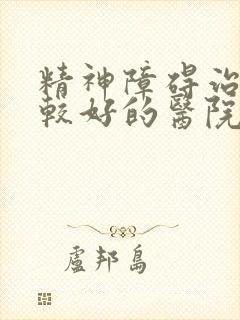 精神障碍治
較好的醫院
盧邦島